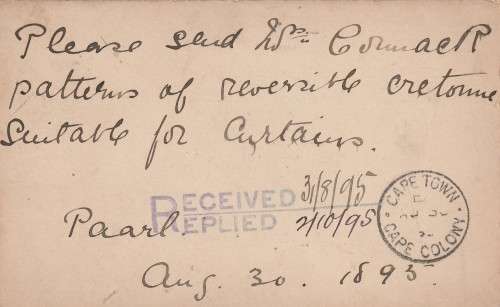 Please send Mrs Cormack
patterns of reversible cretonne
suitable for Curtains.
RECEIVED 31/8/95
REPLIED 2/10/95
Paarl.
Aug. 30. 1895.
CAPE TOWN
CAPE COLONY